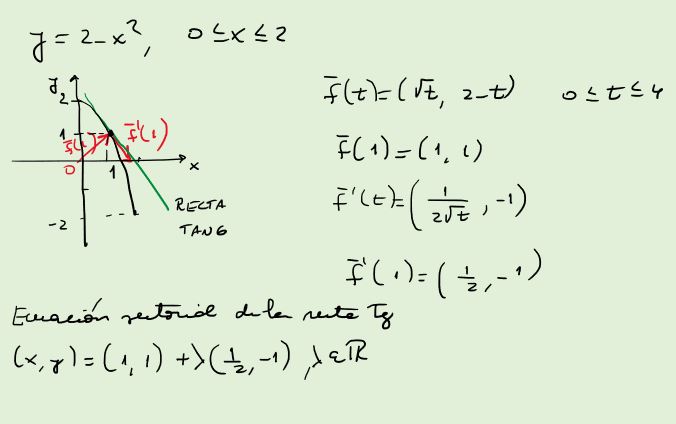 y = 2-x², 0 ≤ x ≤ 2
y
2
1
f̄(1) f̄'(1)
0 1 x
-2
RECTA
TANG
f̄(t)=(√t, 2-t) 0 ≤ t ≤ 4
f̄(1)=(1,1)
f̄'(t)=(1/(2√t), -1)
f̄'(1)=(1/2, -1)
Ecuación vectorial de la recta Tg
(x,y)=(1,1)+λ(1/2,-1), λ∈ℝ